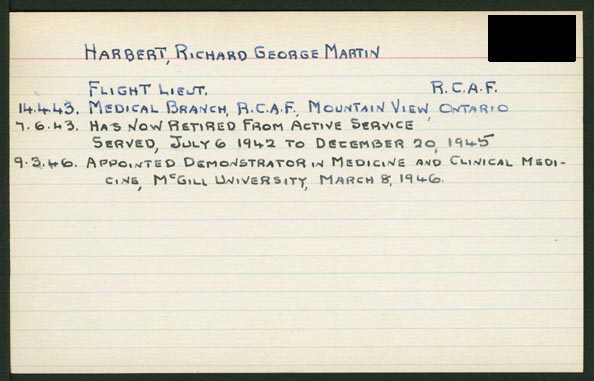 HARBERT, RICHARD GEORGE MARTIN
FLIGHT LIEUT. R.C.A.F.
14.4.43. MEDICAL BRANCH, R.C.A.F., MOUNTAIN VIEW, ONTARIO
7.6.43. HAS NOW RETIRED FROM ACTIVE SERVICE
SERVED, JULY 6 1942 TO DECEMBER 20, 1945
9.3.46. APPOINTED DEMONSTRATOR IN MEDICINE AND CLINICAL MEDI-
CINE, McGILL UNIVERSITY, MARCH 8, 1946.